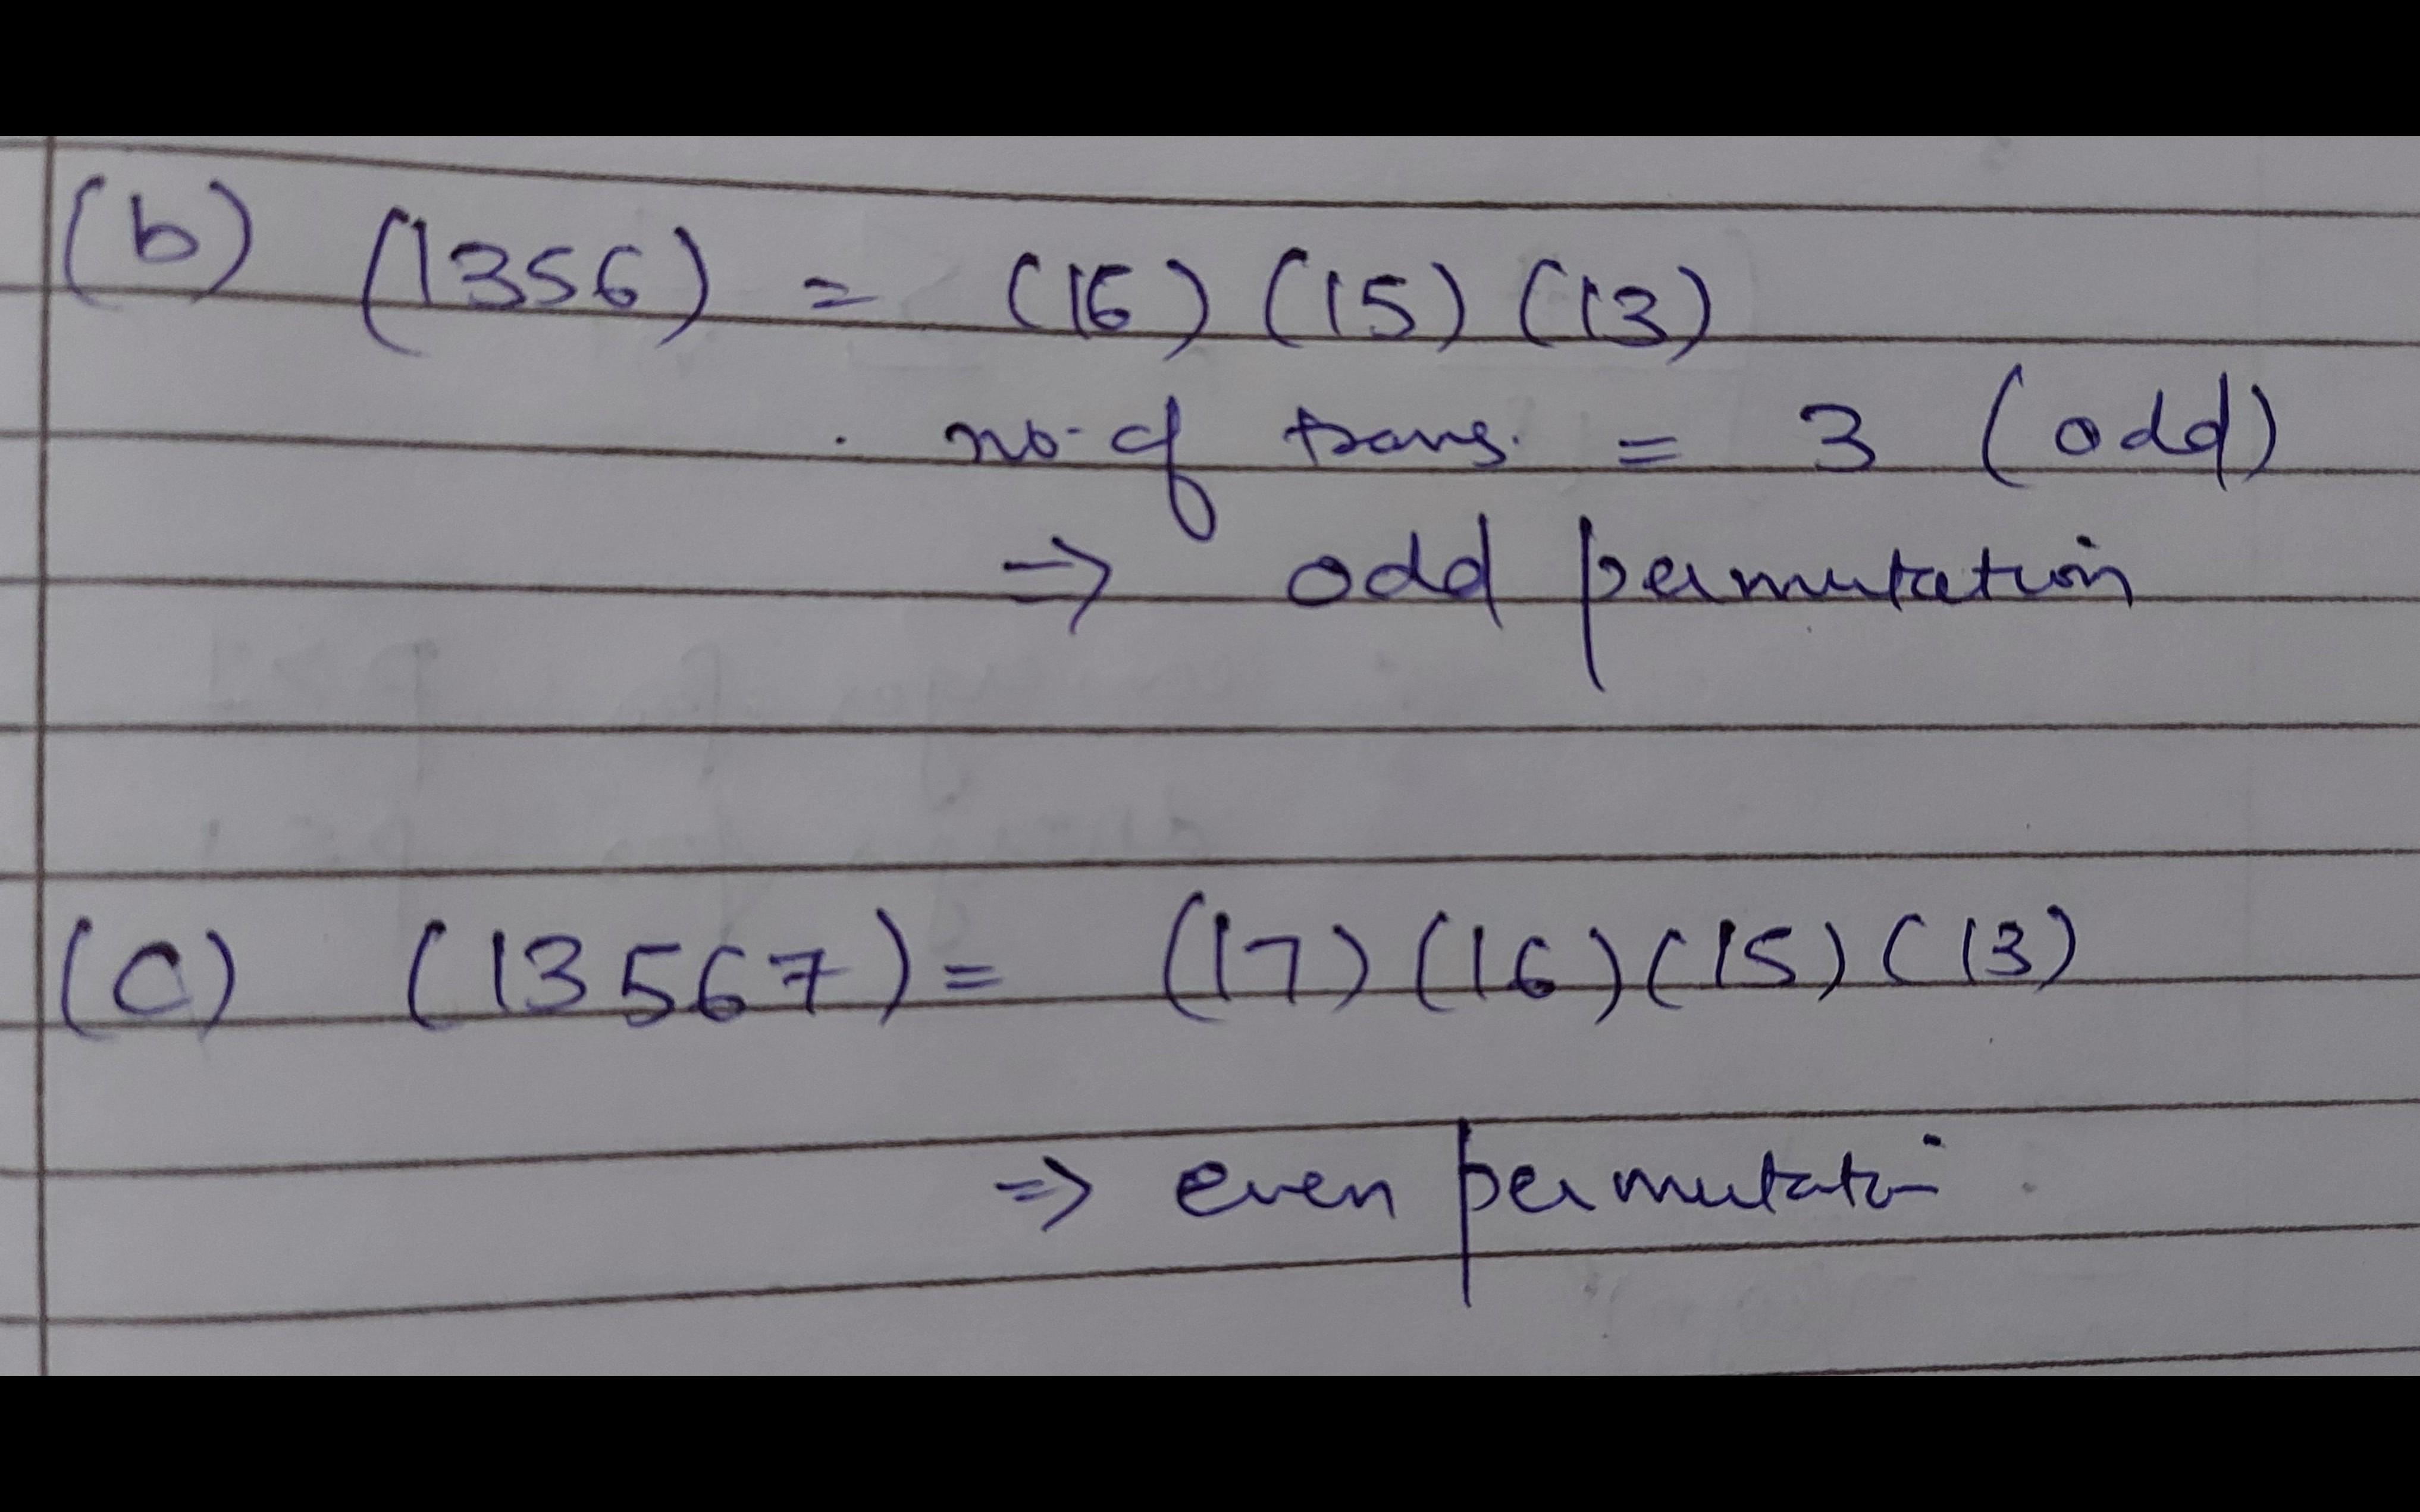 (b) (1356) = (16) (15) (13)
no. of trans. = 3 (odd)
⇒ odd permutation
(C) (13567) = (17) (16) (15) (13)
⇒ even permutation